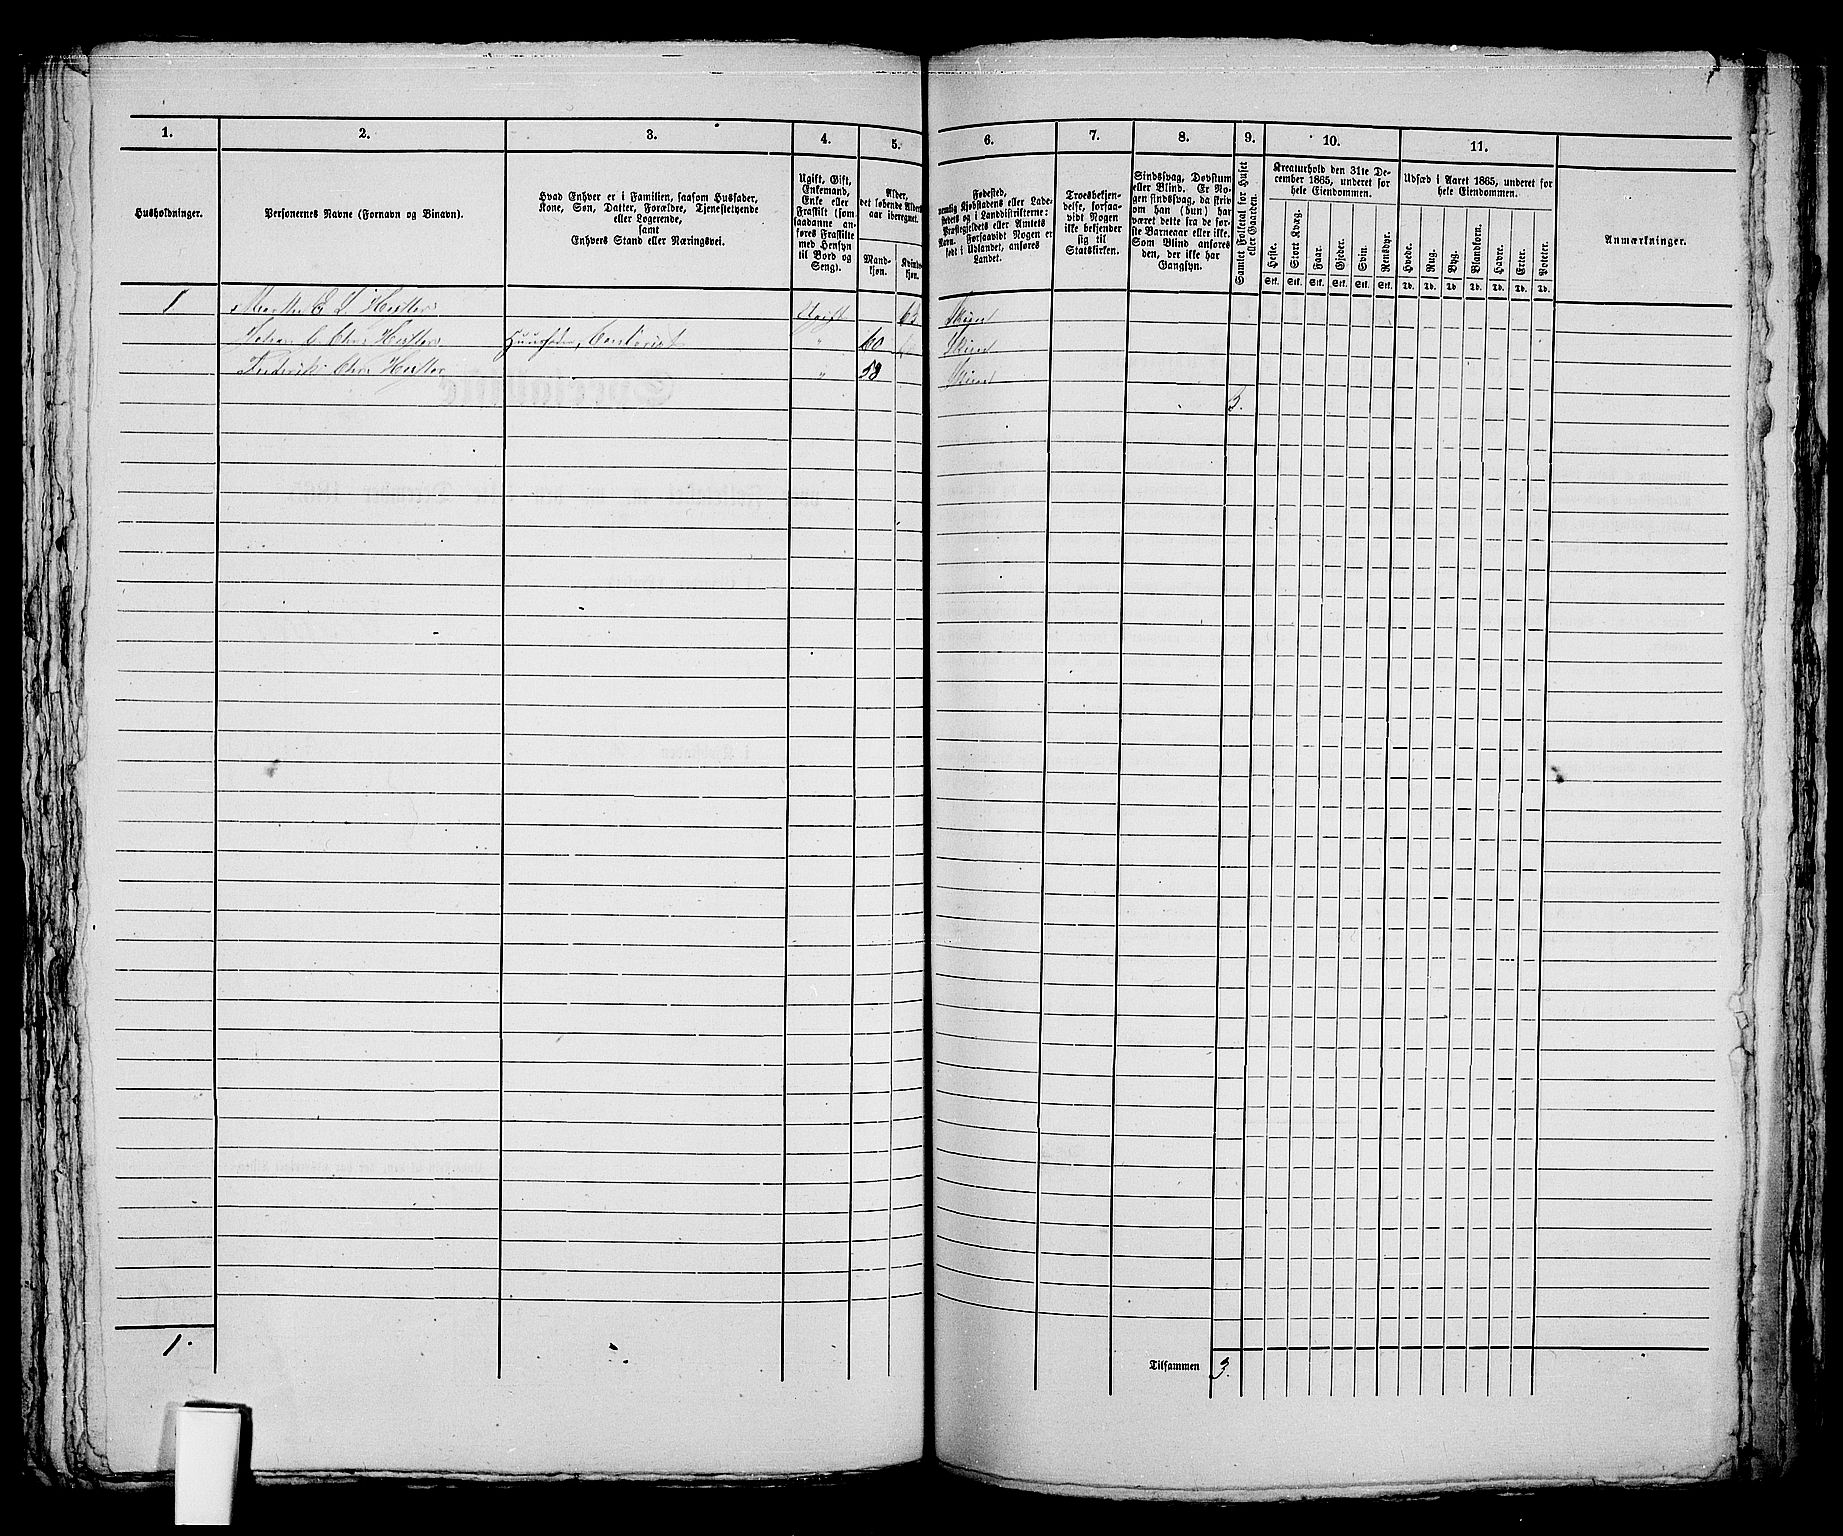 1.
2.
3.
4.
5.
6.
7.
8.
9.
10.
11.
Husholdninger.
Personernes Navne (Fornavn og Binavn).
Hvad Enhver er i Familien, saasom Husfader,
Kone, Søn, Datter, Forældre, Tjenestetyende
eller Logerende,
samt
Enhvers Stand eller Næringsvei.
Ugift, Gift,
Enkemand,
Enke eller
Fraskilt (som
saadanne an-
føres Fraskilte
med Hensyn
til Bord og
Seng).
Alder,
det løbende Alders-
aar iberegnet.
Mand-
kjøn.
Kvinde-
kjøn.
Fødested,
nemlig Kjøbstadens eller Lade-
stedets og i Landdistrikterne:
Præstegjeldets eller Amtets
Navn. Forsaavidt Nogen er
født i Udlandet, anføres
Landet.
Troesbekjen-
delse, forsaa-
vidt Nogen
ikke bekjender
sig til
Statskirken.
Sindssvag, Døvstum
eller Blind. Er No-
gen sindssvag, da skriv
om han (hun) har
været dette fra de før-
ste Barneaar eller ikke.
Som Blind anføres
den, der ikke har
Gangsyn.
Samlet Folketal for Huset
eller Gaarden.
Kreaturhold den 31te De-
cember 1865, underet for
hele Eiendommen.
Heste. Stort Kvæg. Faar. Gjeder. Svin. Rensdyr.
Stk. Stk. Stk. Stk. Stk. Stk.
Udsæd i Aaret 1865, underet for
hele Eiendommen.
Hvede. Rug. Byg. Blandkorn. Havre. Erter. Poteter.
Td. Td. Td. Td. Td. Td. Td.
Anmærkninger.
1 Marthe E Ugift 63 Skien
Johan C. Chr. Huusfader, Contorist " 60 Skien
Frederik Chr. " 58 Skien
3.
1.
Tilsammen 3.